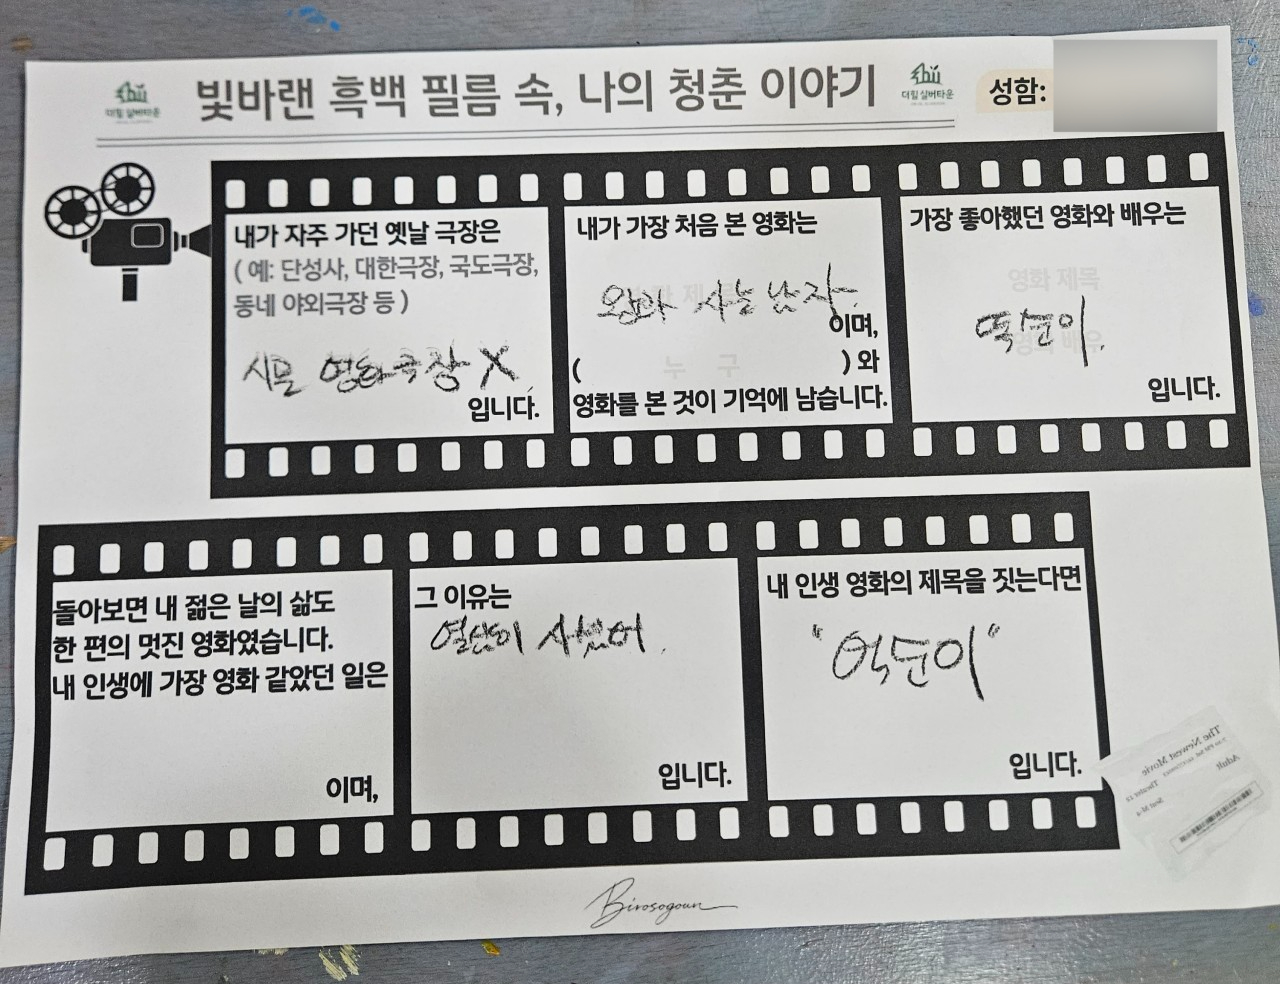 더힐 실버타운
빛바랜 흑백 필름 속, 나의 청춘 이야기
더힐 실버타운
성함:
내가 자주 가던 옛날 극장은
( 예: 단성사, 대한극장, 국도극장,
동네 야외극장 등 )
시골 영화극장 X
입니다.
내가 가장 처음 본 영화는
왕과 사는 남자.
이며,
( 누구 ) 와
영화를 본 것이 기억에 남습니다.
가장 좋아했던 영화와 배우는
영화 제목
영화 배우
억순이.
입니다.
돌아보면 내 젊은 날의 삶도
한 편의 멋진 영화였습니다.
내 인생에 가장 영화 같았던 일은
이며,
그 이유는
열심히 사셨어.
입니다.
내 인생 영화의 제목을 짓는다면
"억순이"
입니다.
The Newest Movie
Adult
Theater
Seat
Birosogoun